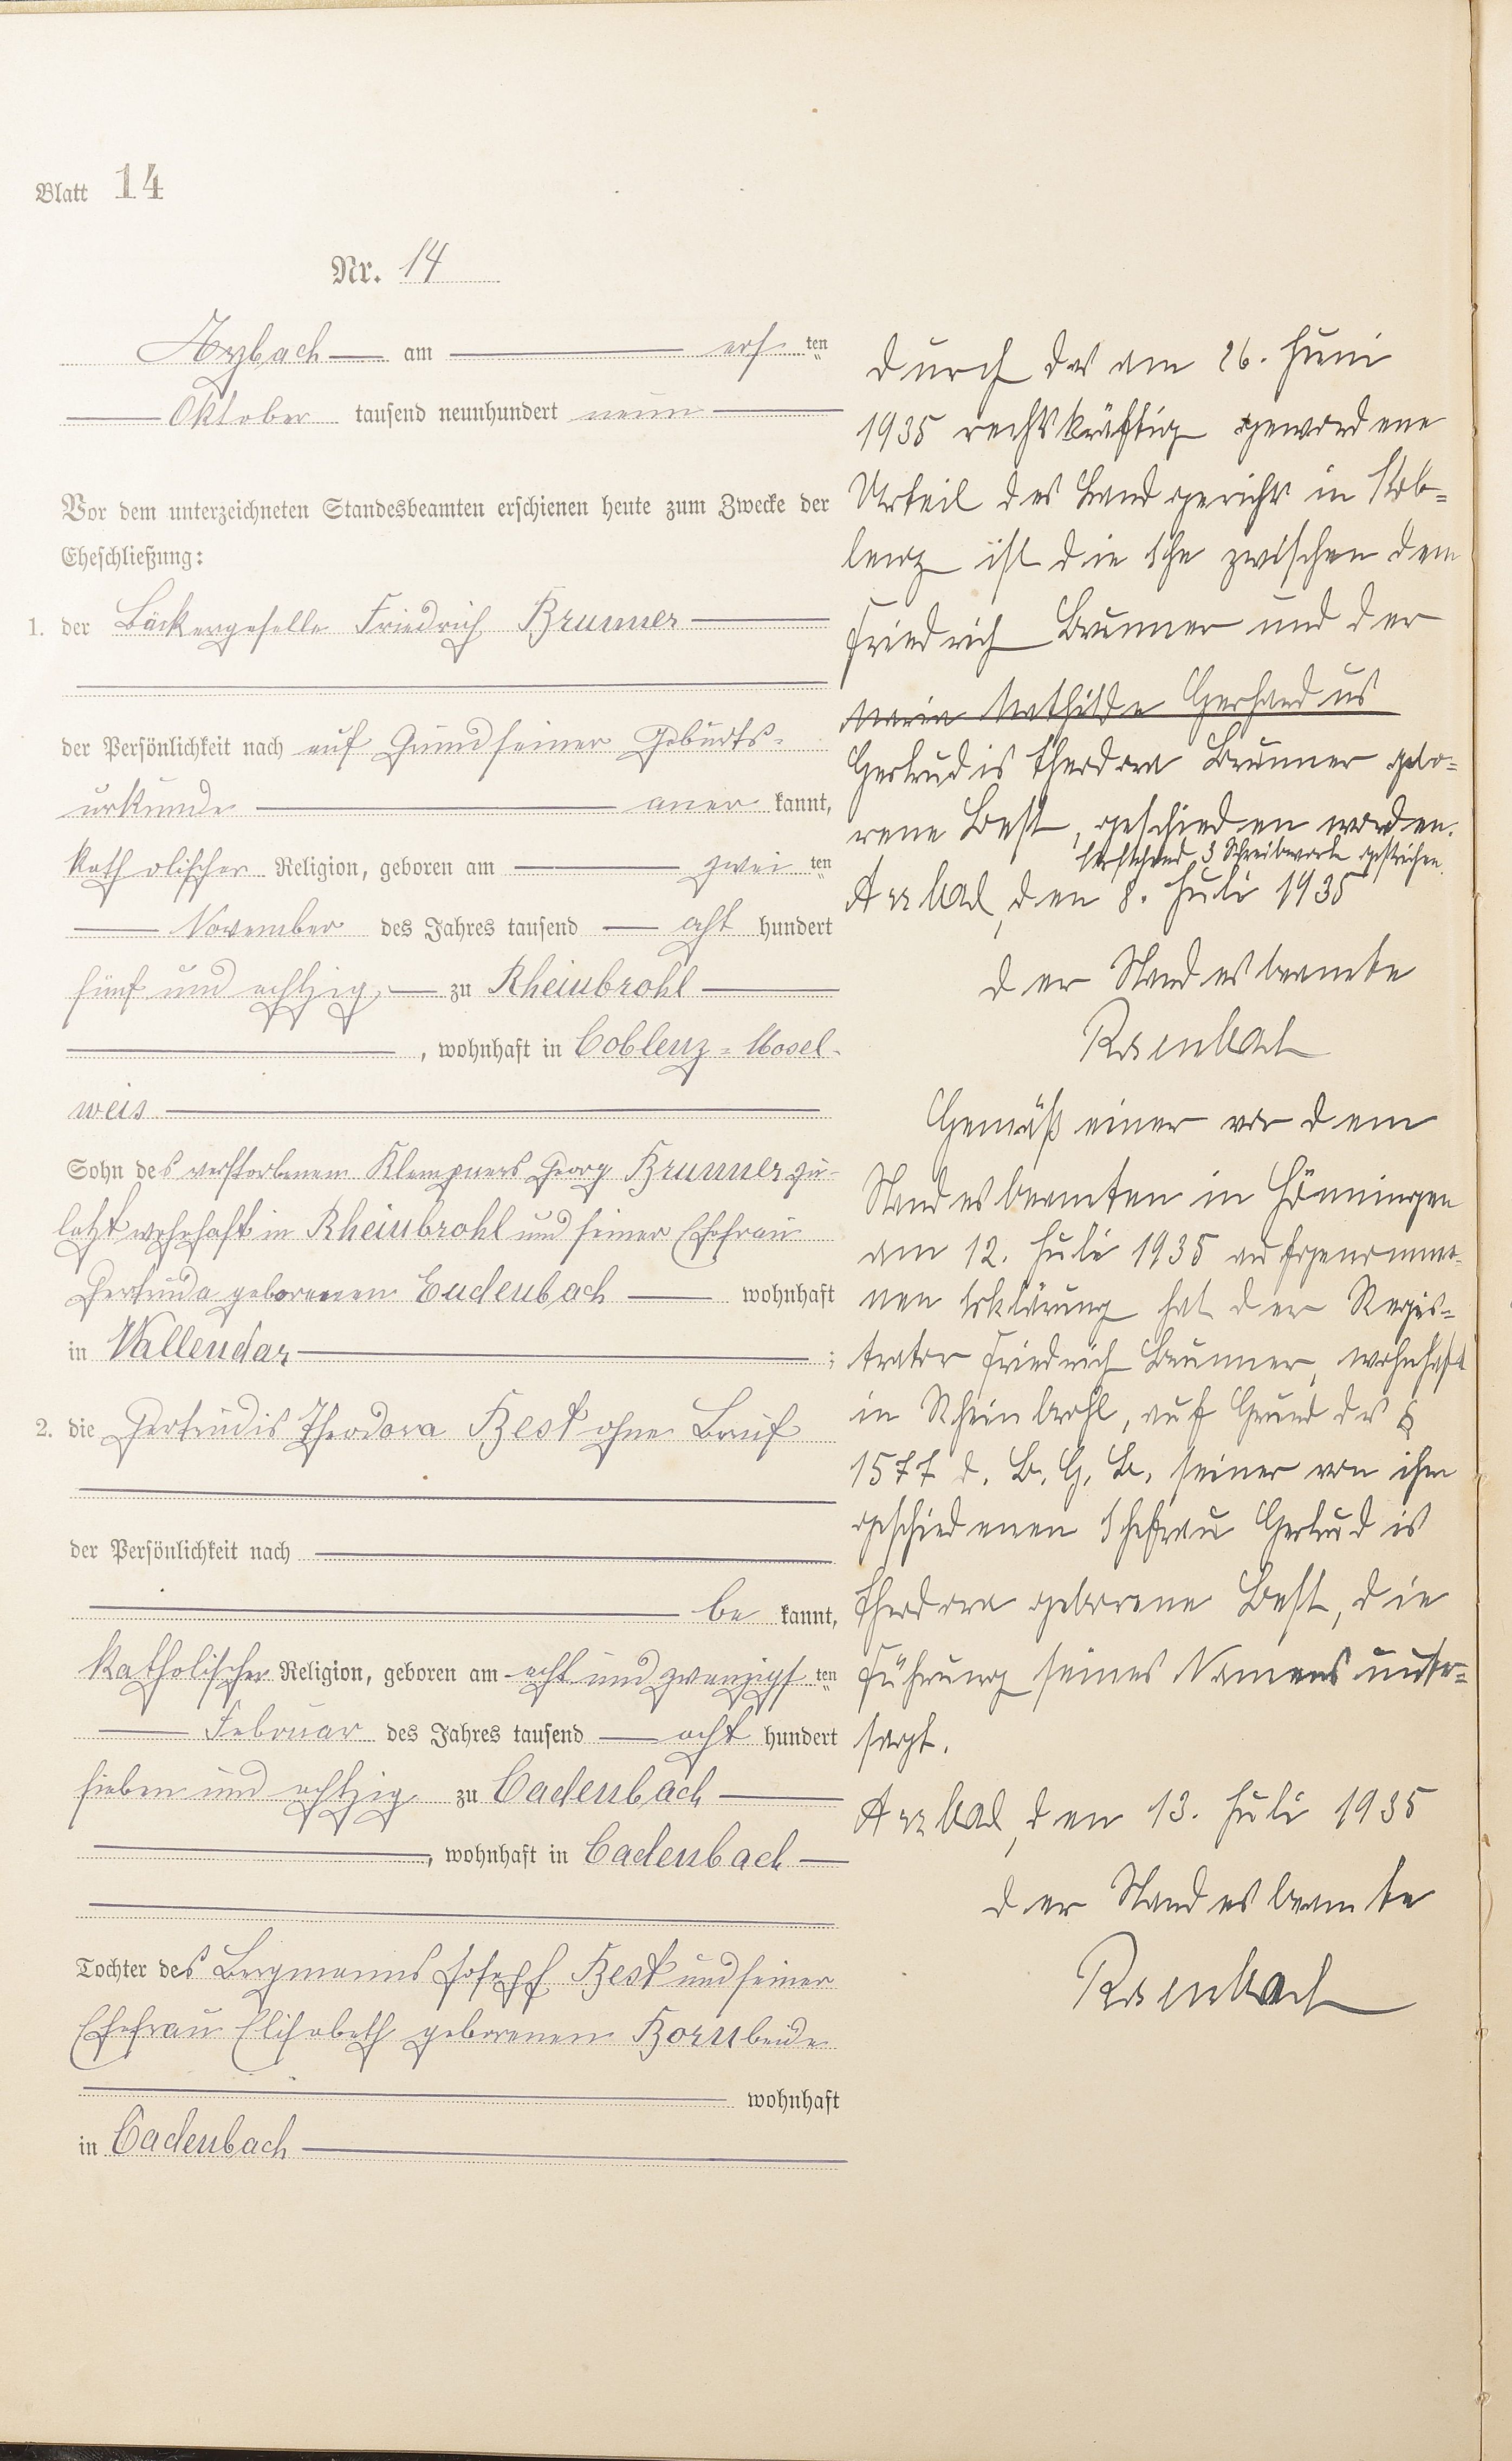 Blatt 14
Nr. 14
Arzbach am ersten
Oktober tausend neunhundert neun
Vor dem unterzeichneten Standesbeamten erschienen heute zum Zwecke der
Eheschließung:
1. der Bäckergeselle Friedrich Brunner
der Persönlichkeit nach auf Grund seiner Geburts-
urkunde anerkannt,
katholischer Religion, geboren am zweiten
November des Jahres tausend acht hundert
fünf und achtzig zu Rheinbrohl
, wohnhaft in Coblenz-Mosel-
weis
Sohn des verstorbenen Klempners Georg Brunner zu-
letzt wohnhaft in Rheinbrohl und seiner Ehefrau
Gertruda geborenen Eudenbach wohnhaft
in Vallendar ;
2. die Gertrudis Theodora Best ohne Beruf
der Persönlichkeit nach
bekannt,
katholischer Religion, geboren am acht und zwanzigsten
Februar des Jahres tausend acht hundert
sieben und achtzig zu Cadenbach
, wohnhaft in Cadenbach
Tochter des Bergmanns Joseph Best und seiner
Ehefrau Elisabeth geborenen Born beide
wohnhaft
in Cadenbach
Durch das am 26. Juni
1935 rechtskräftig gewordene
Urteil des Landgerichts in Kob-
lenz ist die Ehe zwischen dem
Friedrich Brunner und der
Maria Mathilde Gerhardus
Gertrudis Theodora Brunner gebo-
rene Best, geschieden worden.
Vorstehend 3 Schreibworte gestrichen.
Arzbach, den 8. Juli 1935
Der Standesbeamte
Rosenbach
Gemäß einer vor dem
Standesbeamten in Hönningen
am 12. Juli 1935 aufgenomme-
nen Erklärung hat der Regis-
trator Friedrich Brunner, wohnhaft
in Rheinbrohl, auf Grund des §
1577 d. B. G. B. seiner von ihm
geschiedenen Ehefrau Gertrudis
Theodora geborene Best, die
Führung seines Namens unter-
sagt.
Arzbach, den 13. Juli 1935
Der Standesbeamte
Rosenbach